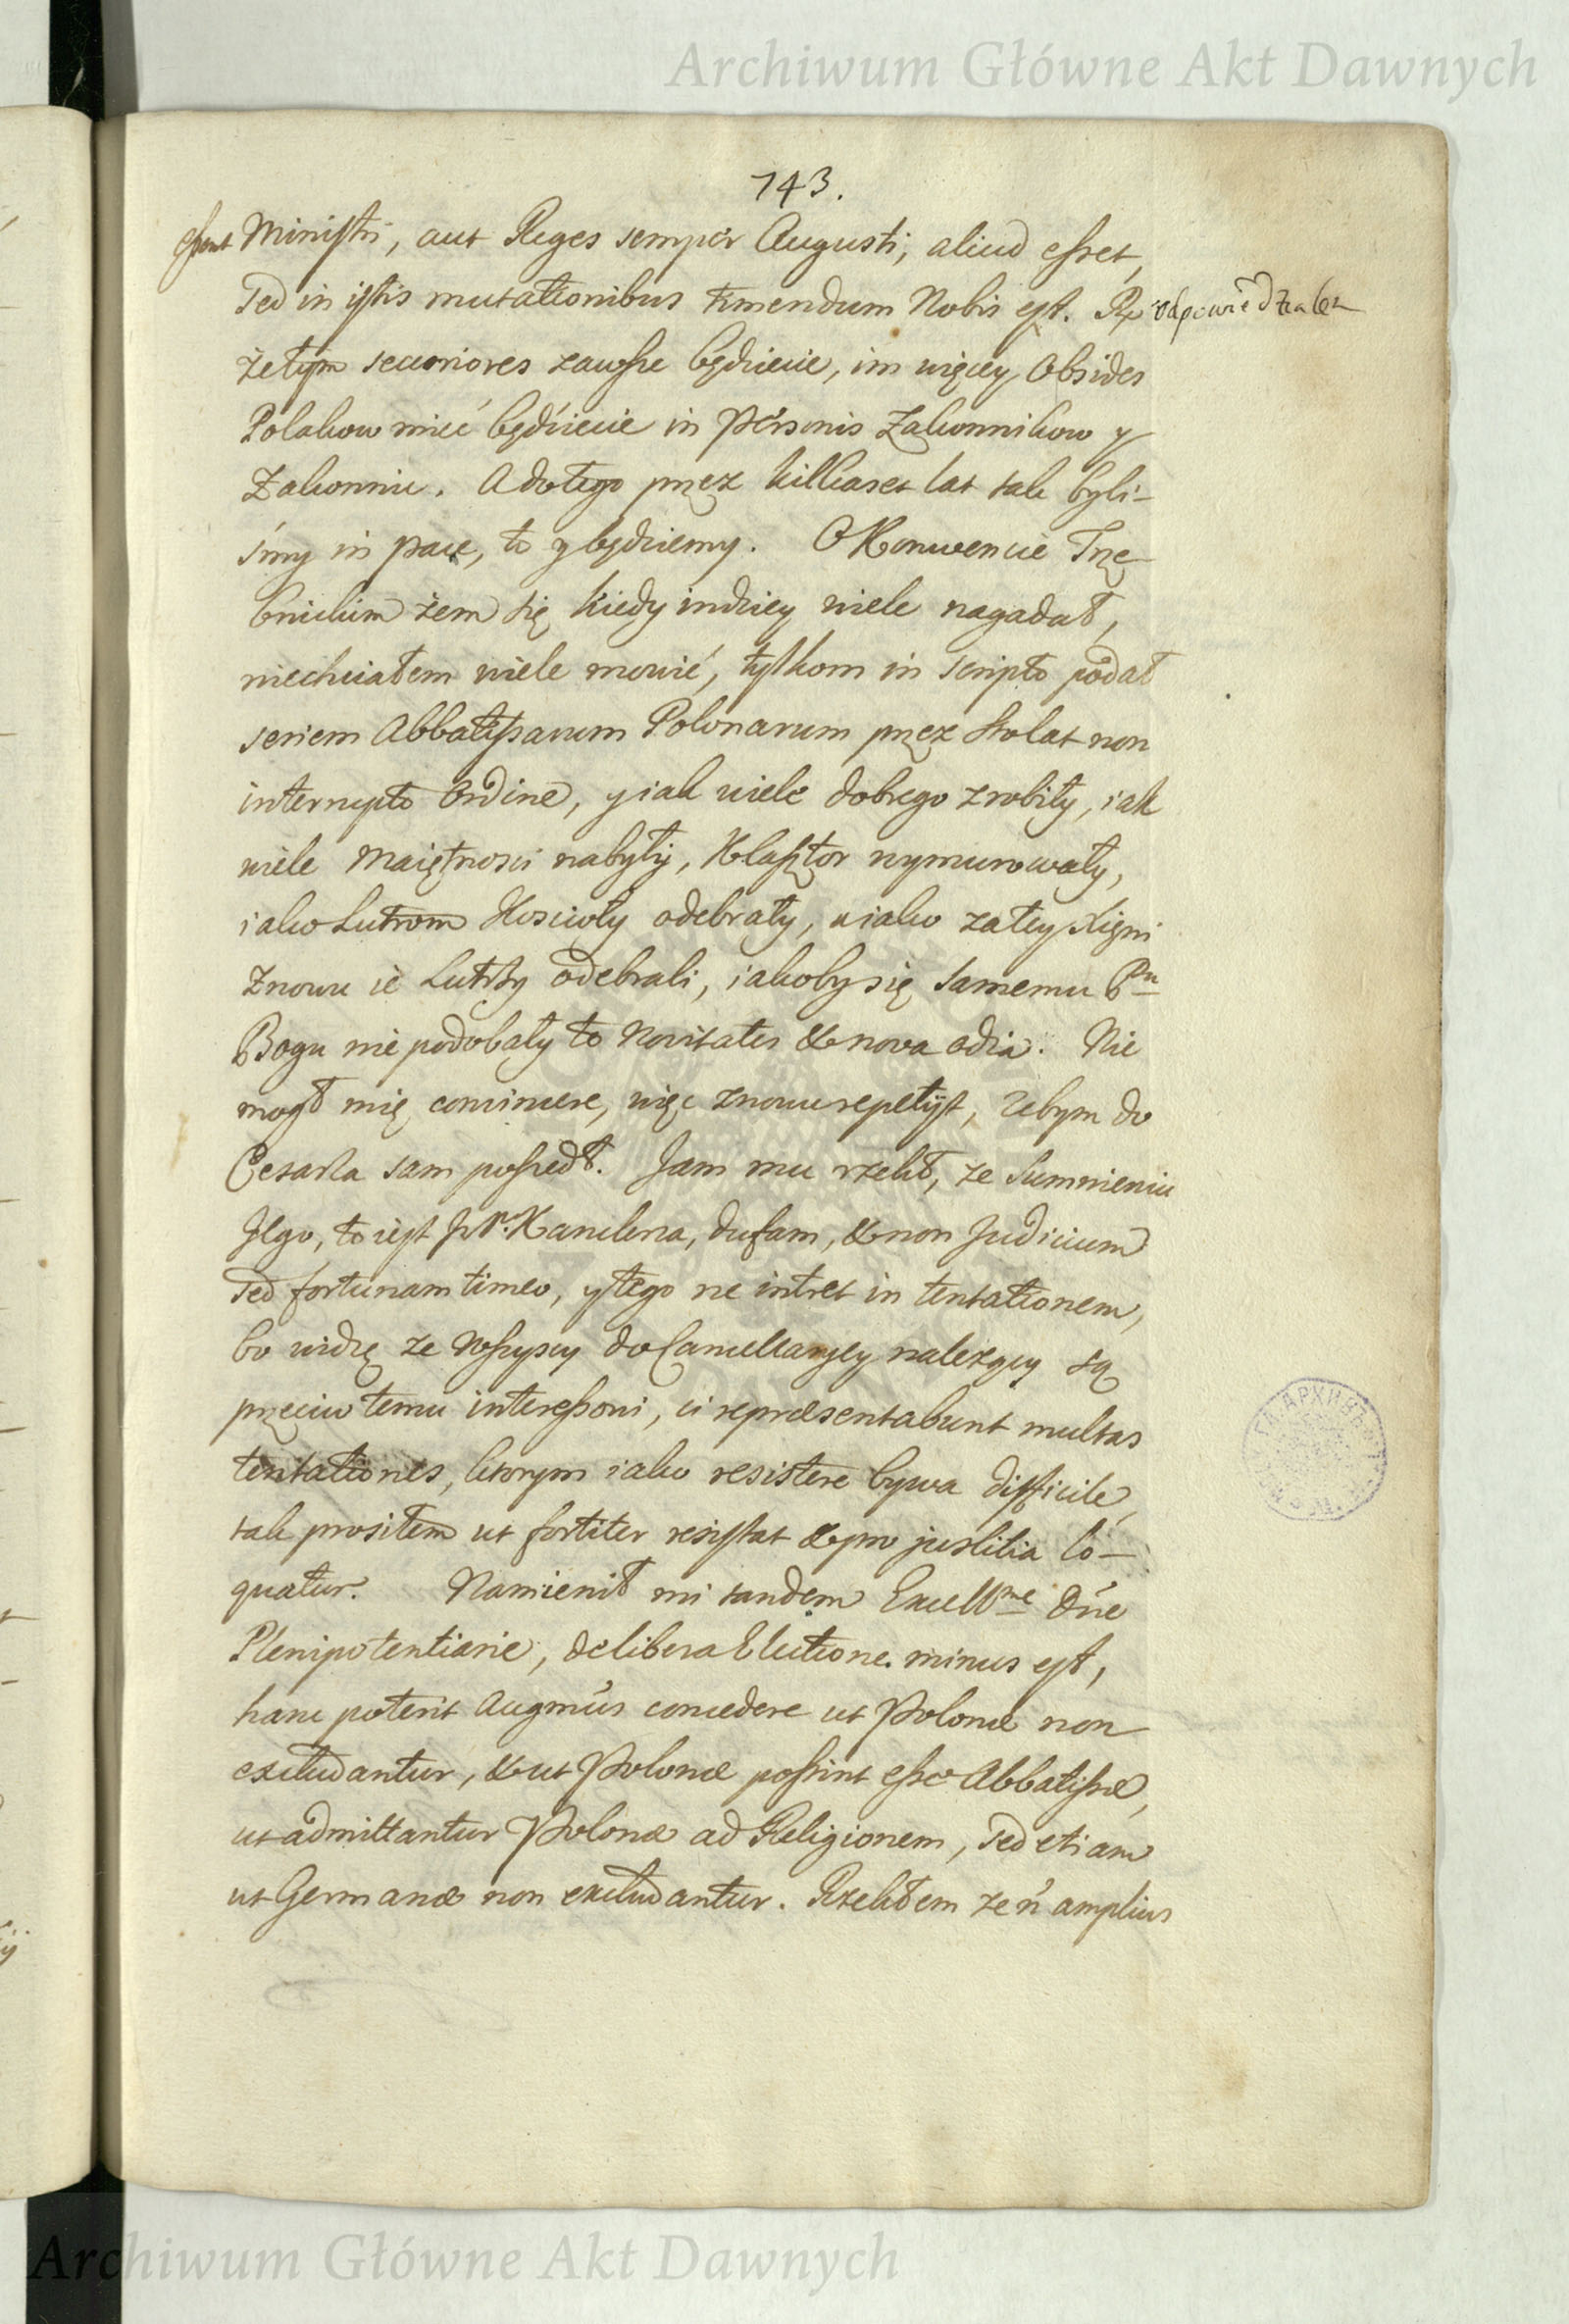 Archiwum Główne Akt Dawnych
743.
essent Ministri, aut Reges semper Augusti, aliud esset,
sed in istis mutationibus timendum Nobis est. Rx odpowiedziałem
że tym securiores zawsze będziecie, im więcey Obsides
Polakow mieć będziecie in Personis Zakonnikow y
Zakonnic. A do tego przez kilkaset lat tak byli-
śmy in pace, to y będziemy. O Konwencie Trze-
bnickim żem się kiedy indziey wiele nagadał,
niechciałem wiele mowić, tylkom in scripto podał
seriem Abbatissarum Polonarum przez sto lat non
interrupto Ordine, y iak wiele dobrego zrobiły, iak
wiele Maiętnosci nabyły, Klasztor wymurowały,
iako Lutrom Koscioły odebrały, a iako za tey Xięni
znowu ie Lutrzy odebrali, iakoby się samemu Pnu
Bogu nie podobały to Novitates & nova odia. Nie
mogł mię convincere, więc znowu repetijt, zebym do
Cesarza sam poszedł. Jam mu rzekł, ze Sumnieniu
Jego, to iest JP. Kanclerza, dufam, & non Judicium
sed fortunam timeo, y tego ne intret in tentationem,
bo widzę ze wszyscy do Cancellaryey nalezący są
przeciw temu interessowi, ci repræsentabunt multas
tentationes, ktorym iako resistere bywa difficile,
tak prositem ut fortiter resistat & pro justitia lo-
quatur. Namienił mi tandem Excellme Dne
Plenipotentiarie, de libera Electione minus est,
hanc poterit Augmus concedere ut Polonæ non
excludantur, & ut Polonæ possint esse Abbatissæ,
ut admittantur Polonæ ad Religionem, sed etiam
ut Germanæ non excludantur. Rzekłem ze n amplius
Archiwum Główne Akt Dawnych